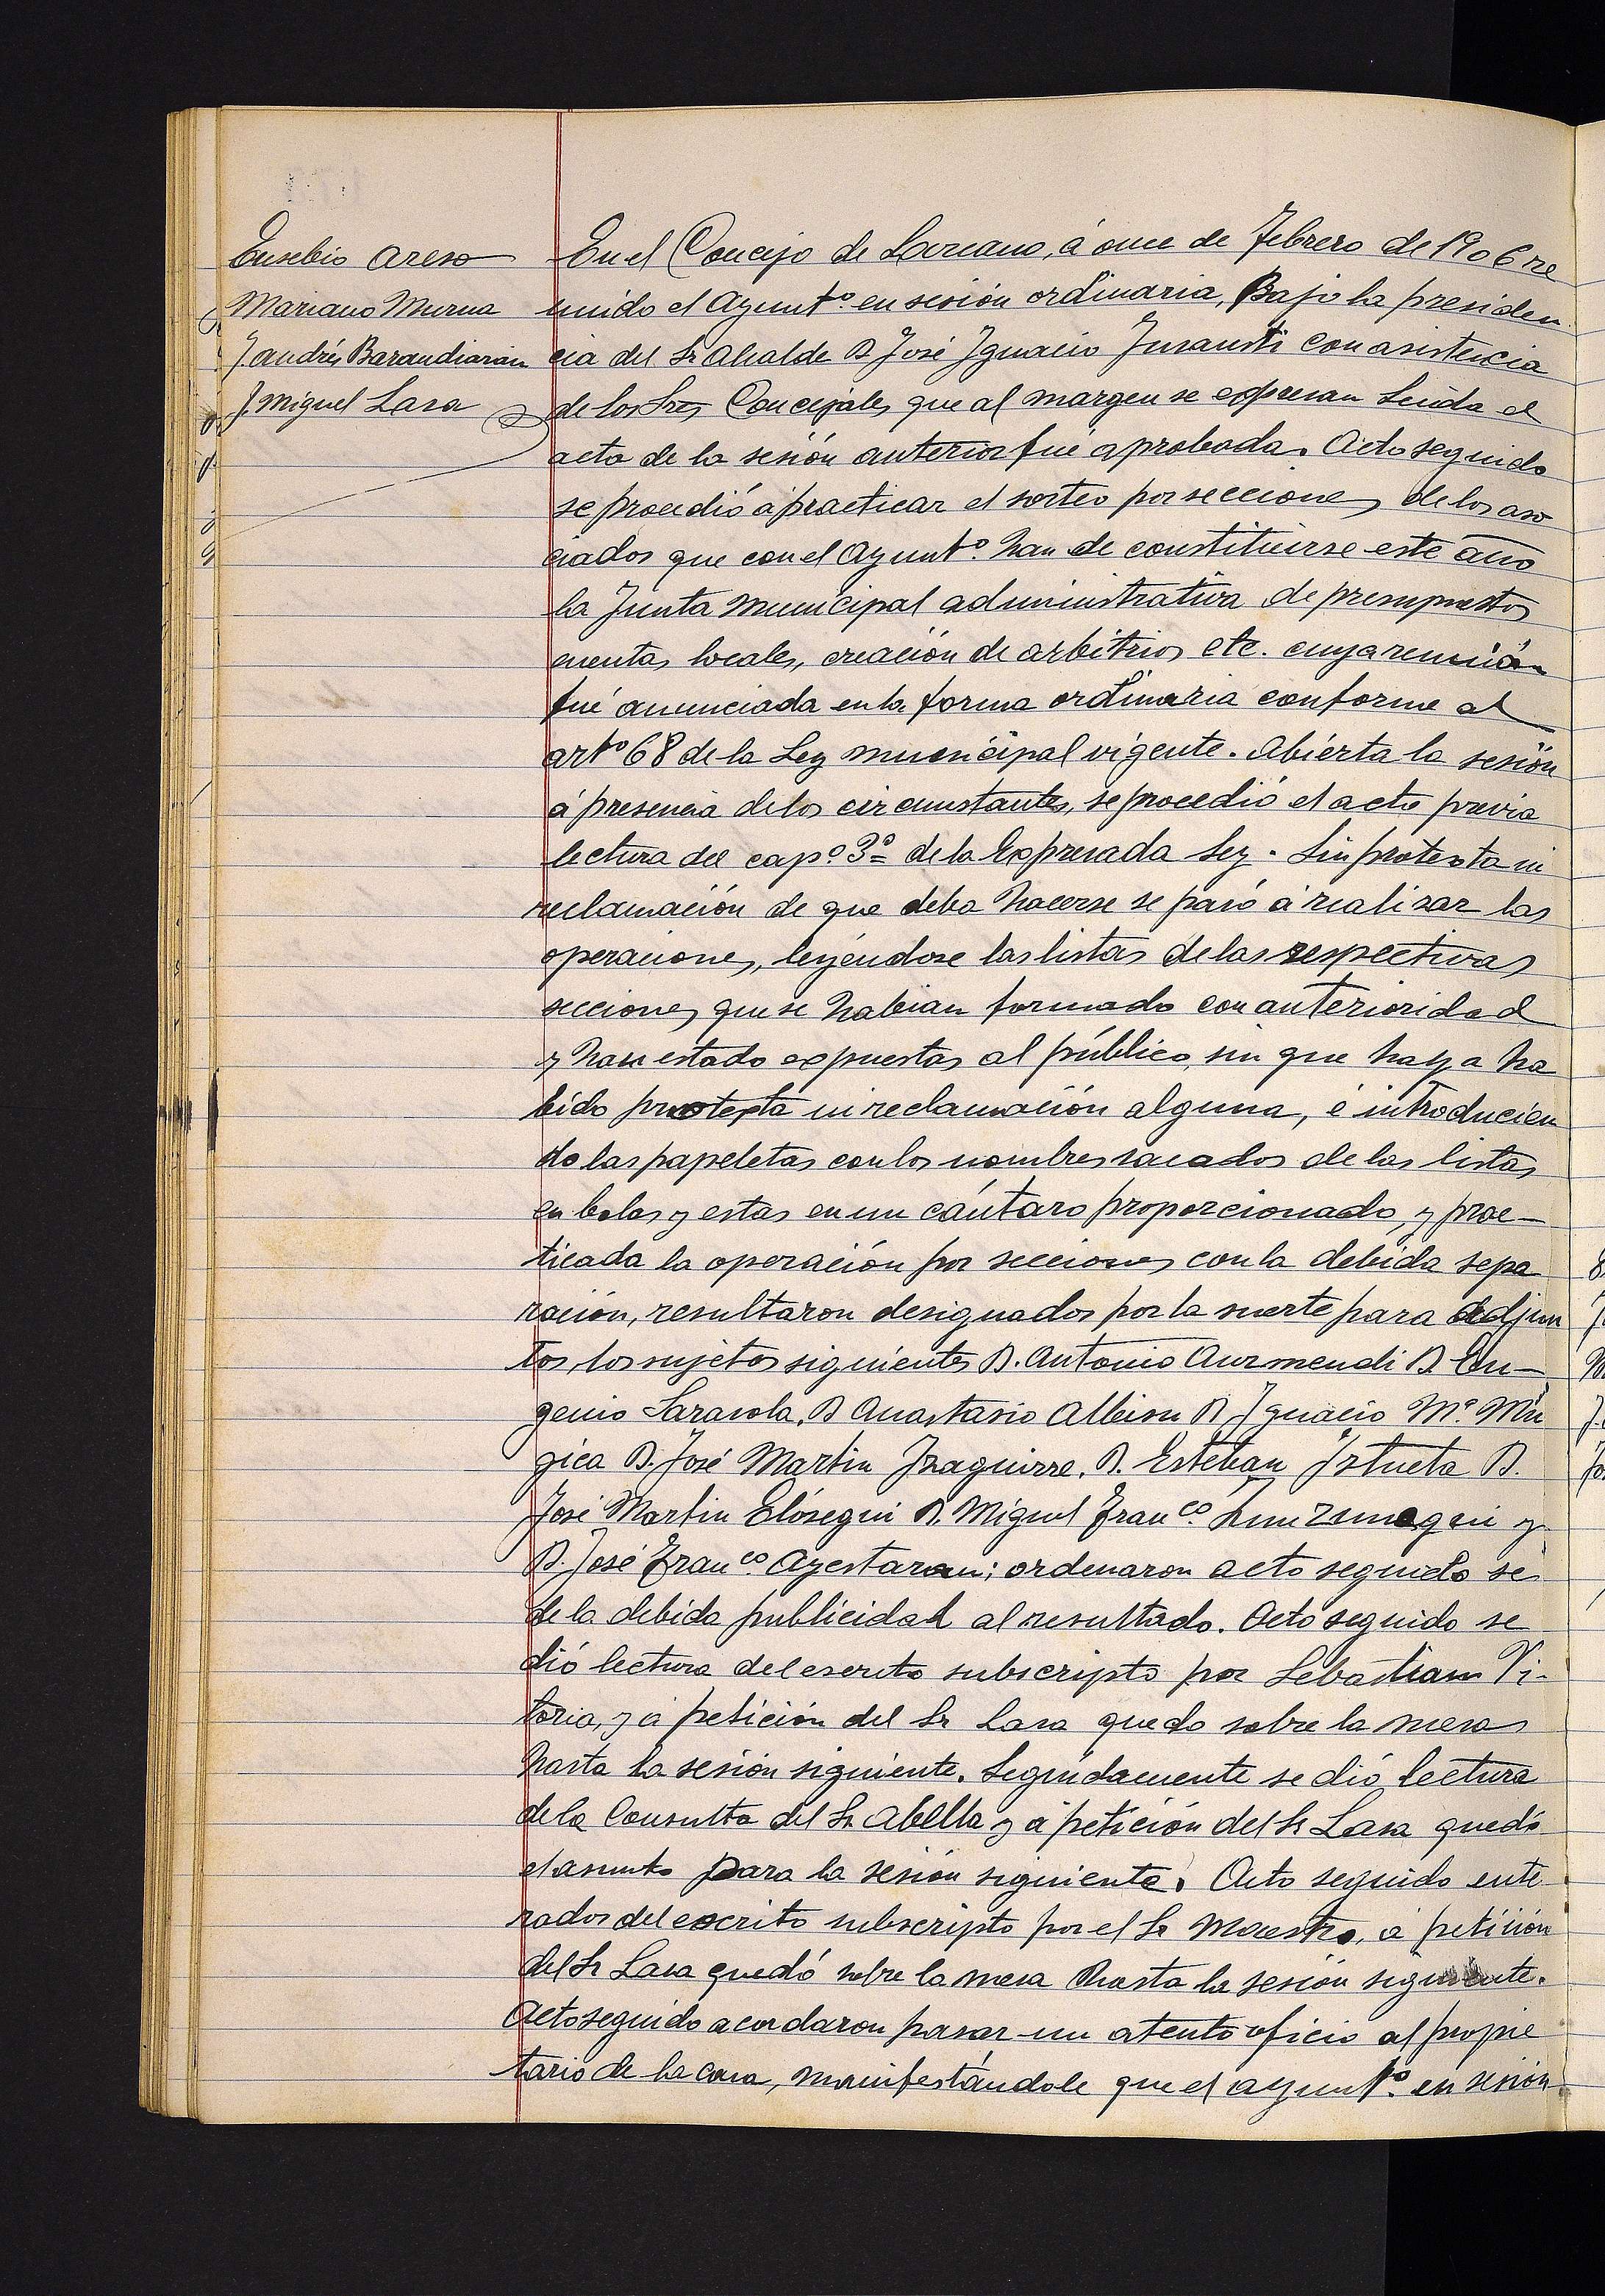 Eusebio Areso
Mariano Murua
J. Andrés Barandiarán
J. Miguel Lasa
En el Concejo de Lazcano, á once de Febrero de 1906 re
unido el Ayuntº en sesión ordinaria, Bajo la presiden
cia del Sr Alcalde D José Ignacio Insausti con asistencia
de los Sres Concejales que al margen se expresan Leida el
acta de la sesión anterior fué aprobada. Acto seguido
se procedió á practicar el sorteo por secciones de los aso
ciados que con el Ayuntº han de constituirse este año
la Junta Municipal administrativa de presupuestos
cuentas locales, creación de arbitrios etc. cuya reunión
fué anunciada en la forma ordinaria conforme al
artº 68 de la Ley municipal vigente. Abierta la sesión
á presencia de los circunstantes, se procedió el acto previa
lectura del capº 3º de la Expresada Ley. Sin protesta ni
reclamación de que deba hacerse se pasó á realisar las
operaciones, leyéndose las listas de las respectivas
secciones que se habian formado con anterioridad
y han estado expuestas al público, sin que haya ha
bido protesta ni reclamación alguna, é introducien
do las papeletas con los nombres sacados de las listas
en bolas y estas en un cántaro proporcionado, y prac-
ticada la operación por secciones con la debida sepa
ración, resultaron designados por la suerte para adjun
tos, los sujetos siguientes D. Antonio Aurmendi D Eu-
genio Sarasola, D Anastasio Albisu D Ignacio Mª Mu
gica D. José Martin Izaguirre, D. Esteban Iztueta D.
José Martin Elósegui D. Miguel Franco y
D. José Franco Ayestaran; ordenaron acto seguido se
de la debida publicidad al resultado. Acto seguido se
dió lectura del escrito subscripto por Sebastian Vi-
toria, y á petición del Sr Lasa quedo sobre la mesa
hasta la sesión siguiente. Seguidamente se dió lectura
de la Consulta del Sr Abella y á petición del Sr Lasa quedó
el asunto para la sesión siguiente. Acto seguido ente
rados del escrito subscripto por el Sr Maestro, á petición
del Sr Lasa quedó sobre la mesa hasta la sesión siguiente.
Acto seguido acordaron pasar un atento oficio al propie
tario de la casa, manifestándole que el ayuntº en sesión